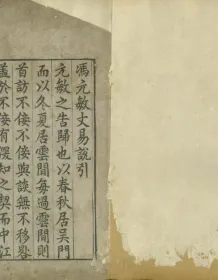 馮元敏文易說引
元敏之告歸也以春秋居吳門
而以冬夏居雲間每過雲間則
首訪不佞不佞與談無不移晷
蓋於不佞有溪知之契而中江